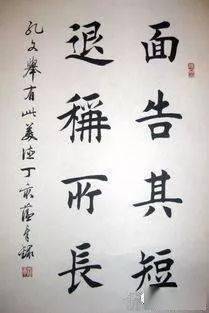 面告其短
退稱所長
孔文舉有此美德丁亥